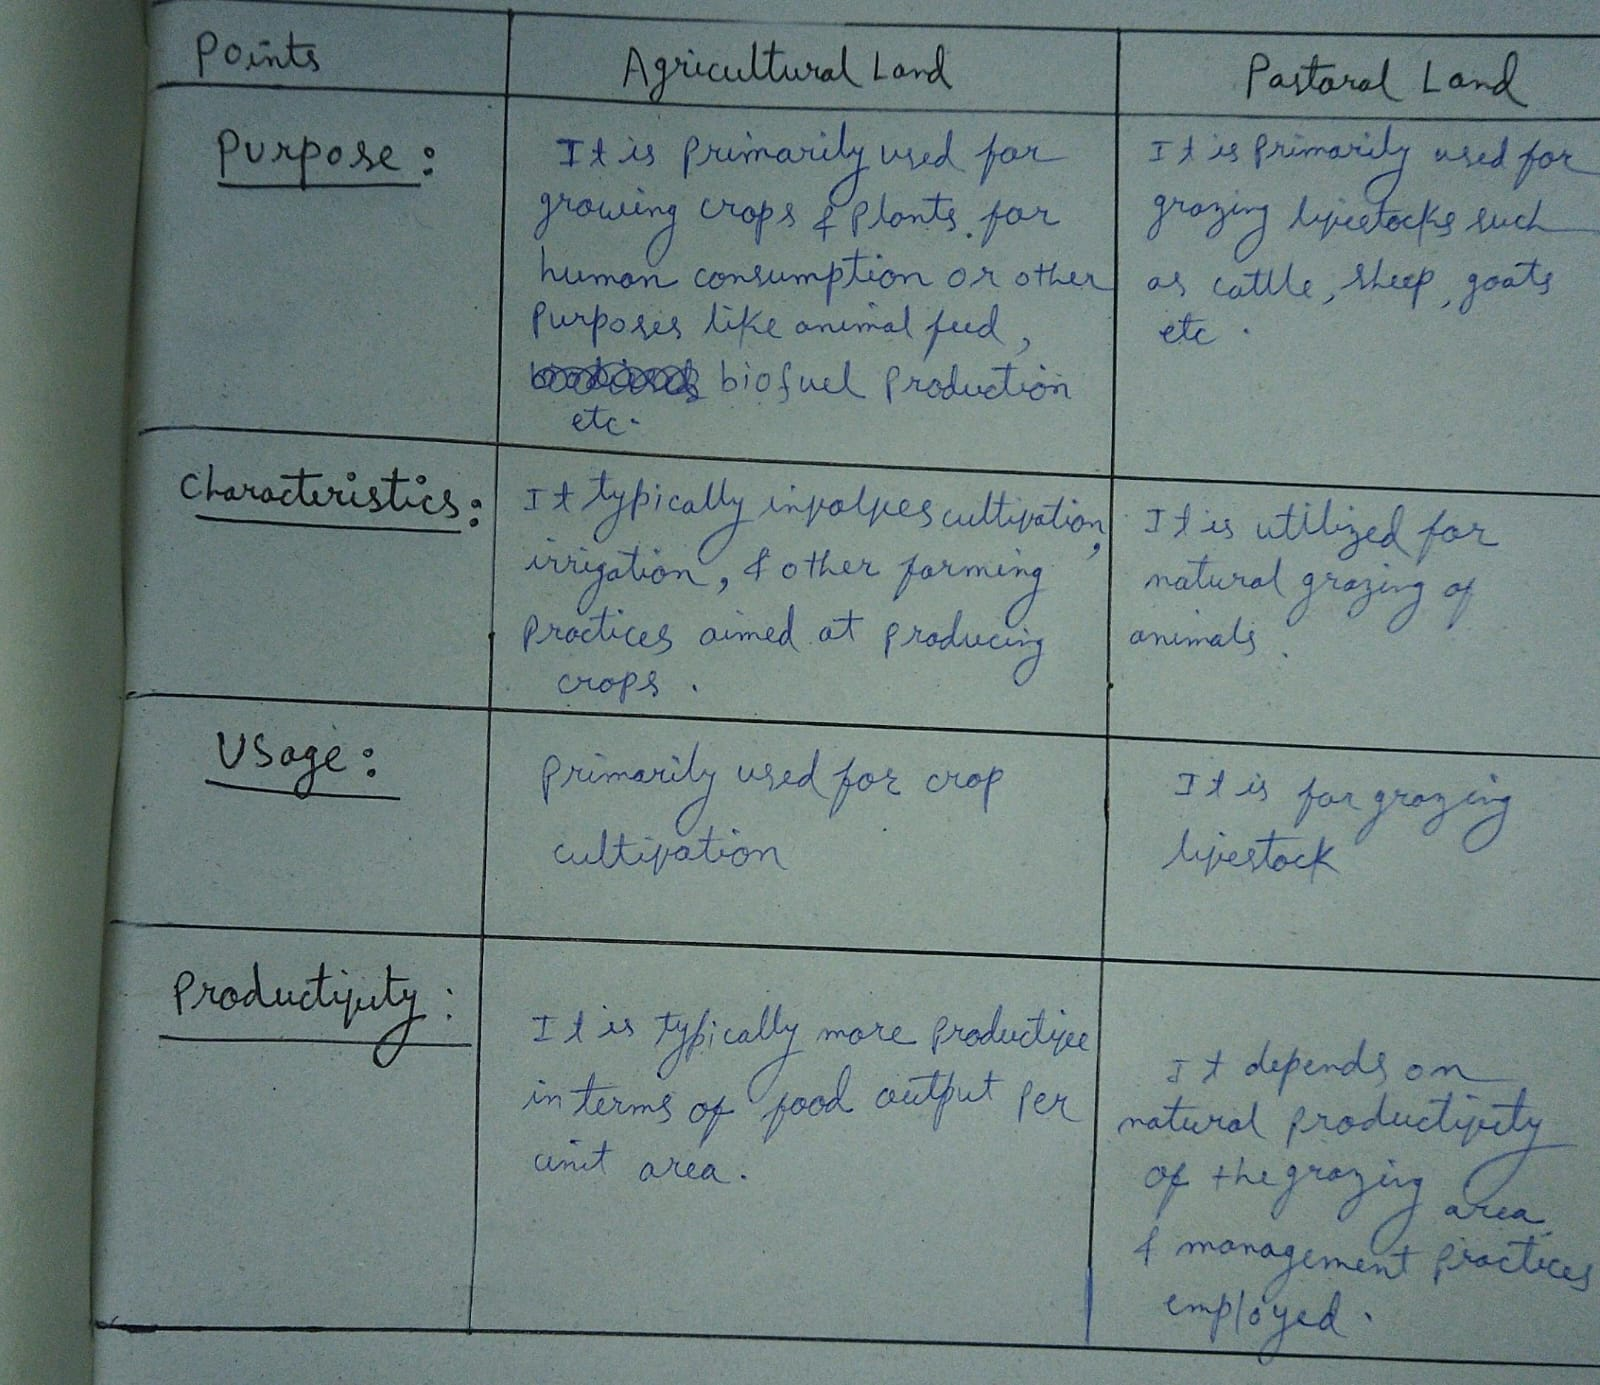 Points
Agricultural Land
Pastoral Land
Purpose:
It is primarily used for
growing crops & plants for
human consumption or other
purposes like animal feed,
biofuel production
etc.
It is primarily used for
grazing livestocks such
as cattle, sheep, goats
etc.
Characteristics:
It typically involves cultivation,
irrigation, & other farming
practices aimed at producing
crops.
It is utilized for
natural grazing of
animals.
Usage:
primarily used for crop
cultivation
It is for grazing
livestock
Productivity:
It is typically more productive
in terms of food output per
unit area.
It depends on
natural productivity
of the grazing area
& management practices
employed.